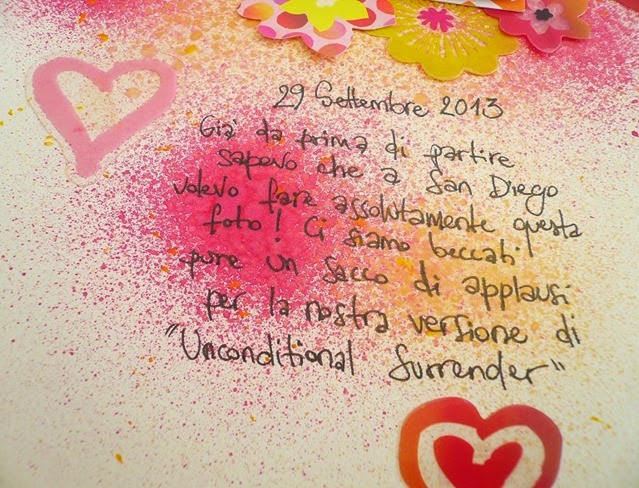 29 Settembre 2013
Già da prima di partire
sapevo che a San Diego
volevo fare assolutamente questa
foto! Ci siamo beccati
pure un sacco di applausi
per la nostra versione di
"Unconditional Surrender"